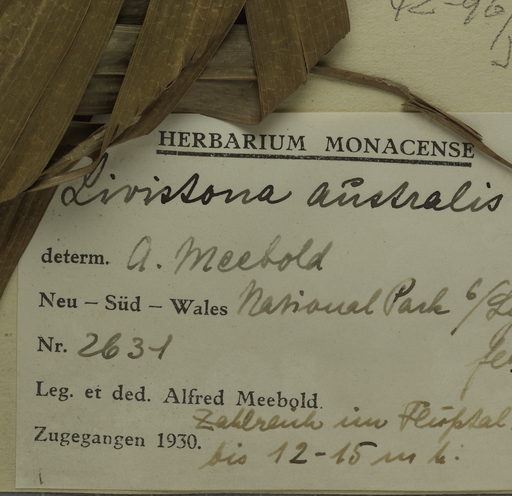 HERBARIUM MONACENSE
Livistona australis
determ. A. Meebold
Neu – Süd – Wales National Park b/
Nr. 2631
Leg. et ded. Alfred Meebold.
Zahlreich im Flußtal
Zugegangen 1930.
bis 12-15 m h.